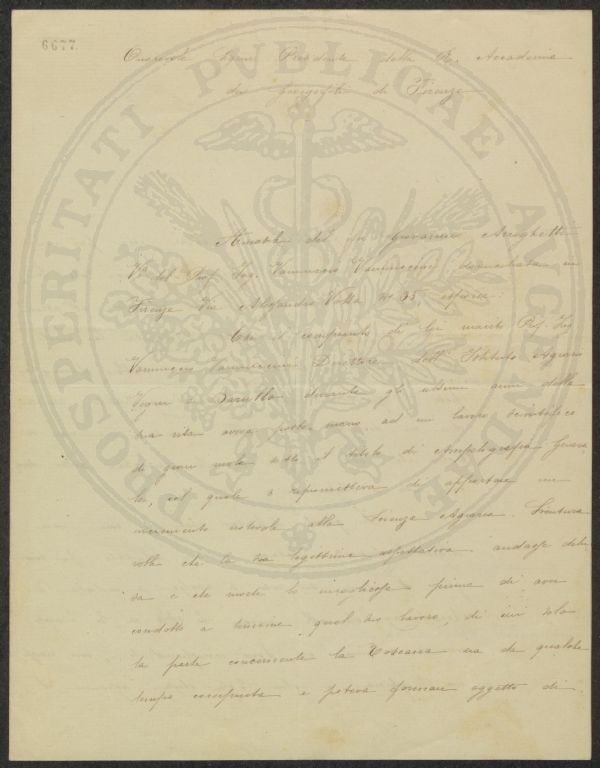 6677
Onorevole Signor Presidente della R. Accademia
dei Georgofili di Firenze
PROSPERITATI PUBLICAE AUGENDAE
Amabile del fu Giovacchino
Va del Prof. Ing. Vannuccio Vannuccini domiciliata in
Firenze Via Alessandro Volta No 35, espone:
Che il compianto di lei marito Prof. Ing
Vannuccio Vannuccini Direttore dell' Istituto Agrario
Vegni a Barullo durante gli ultimi anni della
sua vita aveva posto mano ad un lavoro scientifico
di gran mole sotto il titolo di Ampelografia Genera
le, col quale si riprometteva di apportare un
incremento notevole alla Scienza Agraria. Sventura
volle che la sua legittima aspettativa andasse delu
sa e che morte lo incogliesse prima di aver
condotto a termine quel suo lavoro, di cui sola
la parte concernente la Toscana era da qualche
tempo compiuta e poteva formare oggetto di